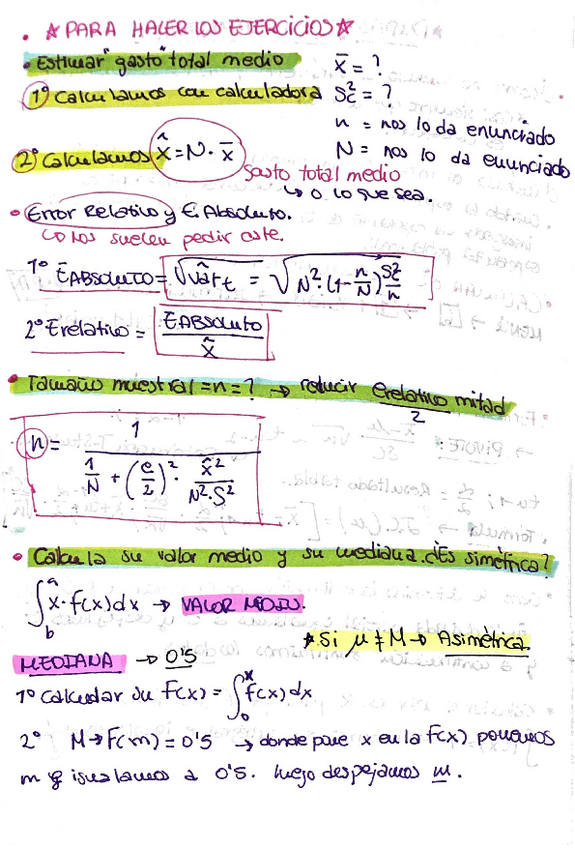 . ☆ PARA HACER LOS EJERCICIOS ☆
• Estimar "gasto" total medio
x̄ = ?
1º Calculamos con calculadora
Sc² = ?
n = nos lo da enunciado
N = nos lo da enunciado
2º Calculamos X̂ = N · x̄
Gasto total medio
↳ o lo que sea.
• Error Relativo y E. Absoluto.
↳ nos suelen pedir este.
1º EABSOLUTO = √Vârt = √N²·(1-n/N) Sc²/n
2º Erelativo = EABSOLUTO / X̂
• Tamaño muestral = n = ? → reducir Erelativo mitad
2
n = 1 / (1/N + (e/2)² · X̂²/N²·S²)
• Calcula su valor medio y su mediana. ¿Es simétrica?
∫ᵇᵃ x · f(x) dx → VALOR MEDIO.
* Si μ ≠ M → Asimétrica.
MEDIANA → 0'5
1º Calcular su F(x) = ∫₀ˣ f(x) dx
2º M → F(m) = 0'5 → donde pone x en la F(x) ponemos
m e igualamos a 0'5. luego despejamos m.